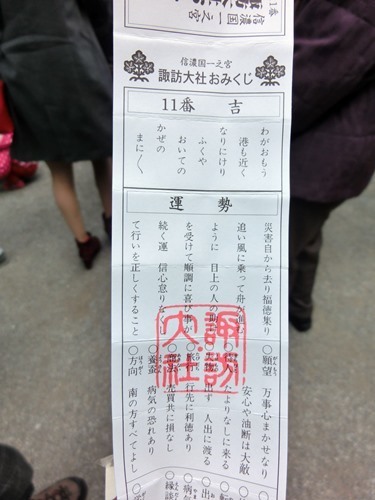 信濃国一之宮
諏訪大社おみくじ
11番 吉
わがおもう
港も近く
なりにけり
ふくや
おいての
かぜの
まに〱
運勢
災害自から去り福徳集り
追い風に乗って舟が進む
ように 目上の人の助け
を受けて順調に喜び事が
続く運 信心怠りなし
て行いを正しくすること
○願望 万事心まかせなり
安心や油断は大敵
○待人 たよりなしに来る
○失物 出ず 人出に渡る
○旅行 行先に利徳あり
○商法 売買共に損なし
○養蚕 病気の恐れあり
○方向 南の方すべてよし
諏訪大社